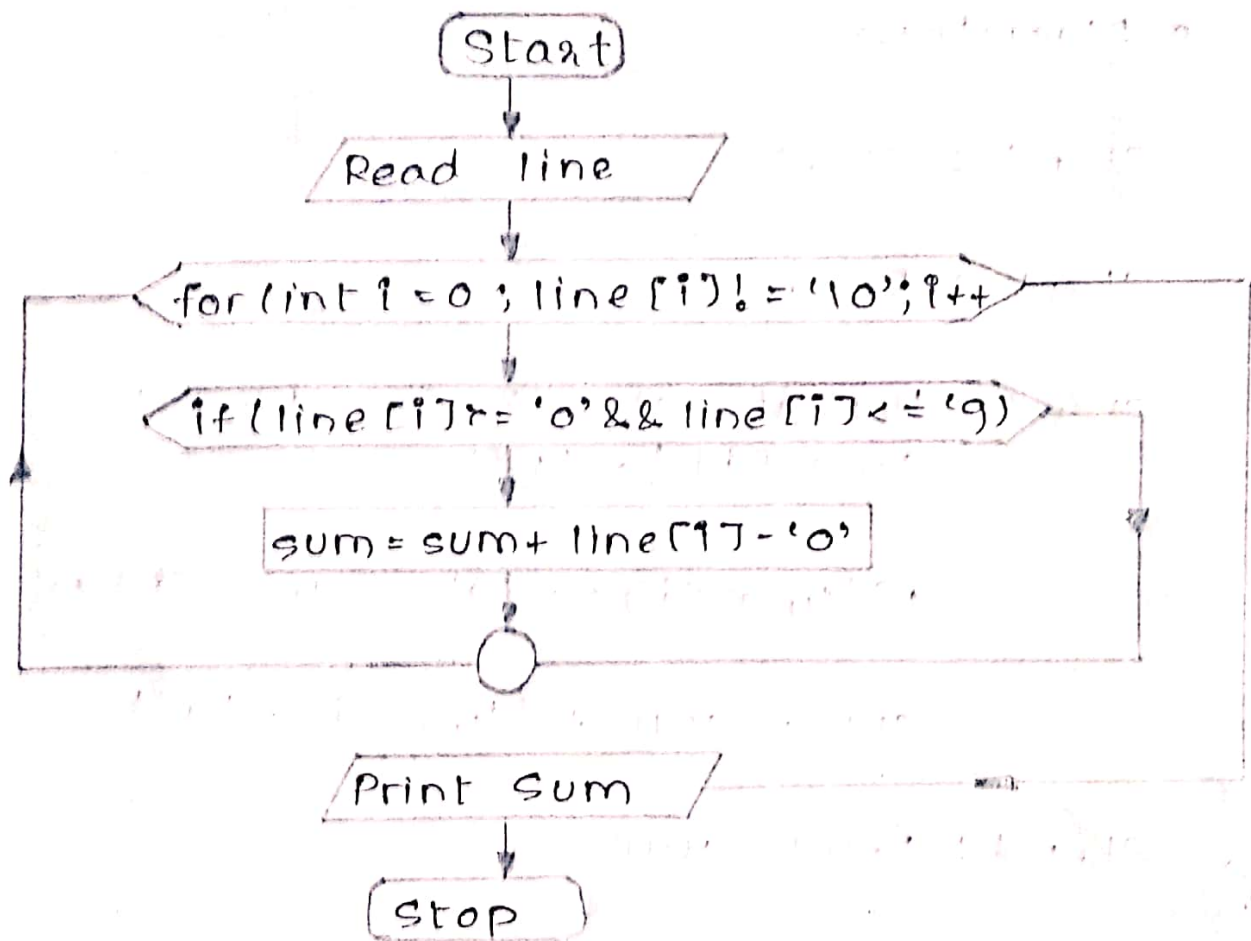 Start
Read line
for(int i=0; line[i]!='\0'; i++
if(line[i]>='0'&& line[i]<='9)
sum = sum+ line[i]-'0'
Print Sum
Stop